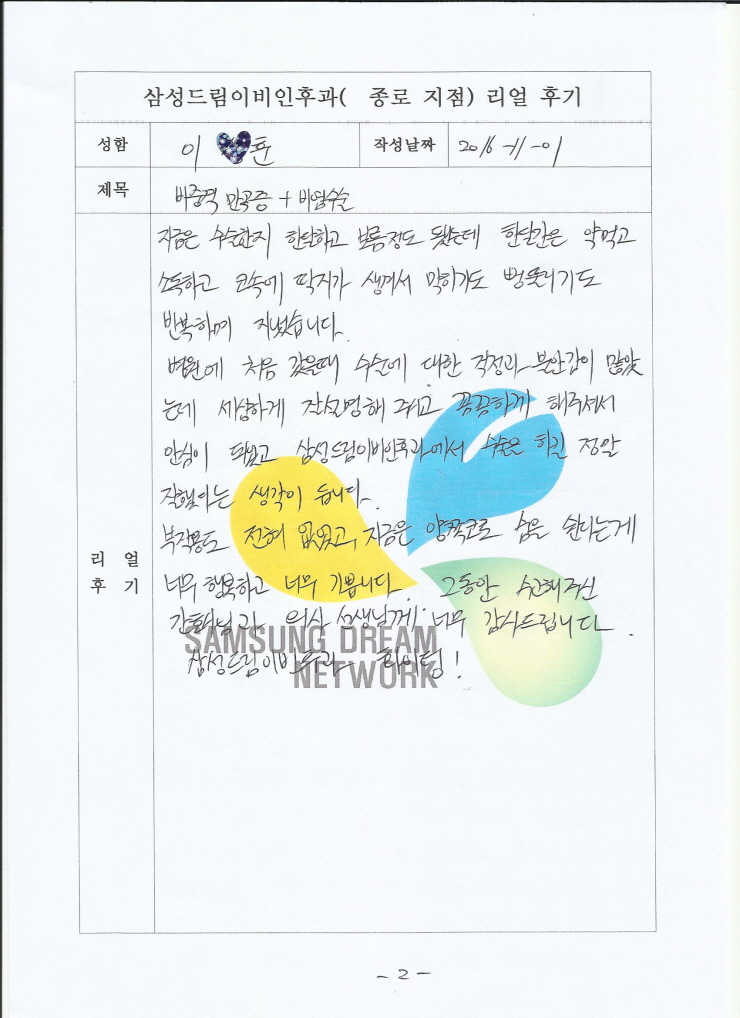 삼성드림이비인후과( 종로 지점) 리얼 후기
성함 이 훈 작성날짜 2016-11-01
제목 비중격 만곡증 + 비염수술
지금은 수술한지 한달하고 보름정도 됐는데 한달간은 약먹고
소독하고 코속에 딱지가 생겨서 막히기도 뻥뚫리기도
반복하며 지냈습니다.
병원에 처음 갔을때 수술에 대한 걱정과 불안감이 많았
는데 세심하게 잘설명해 주시고 꼼꼼하게 해주셔서
안심이 되었고 삼성드림이비인후과에서 수술을 하긴 정말
잘했다는 생각이 듭니다.
부작용도 전혀 없었고, 지금은 양쪽코로 숨을 쉰다는게
리 얼
후 기
너무 행복하고 너무 기쁩니다. 그동안 수고해주신
간호사님과 의사 선생님께 너무 감사드립니다.
SAMSUNG DREAM
삼성드림이비인후과 화이팅!
NETWORK
- 2 -